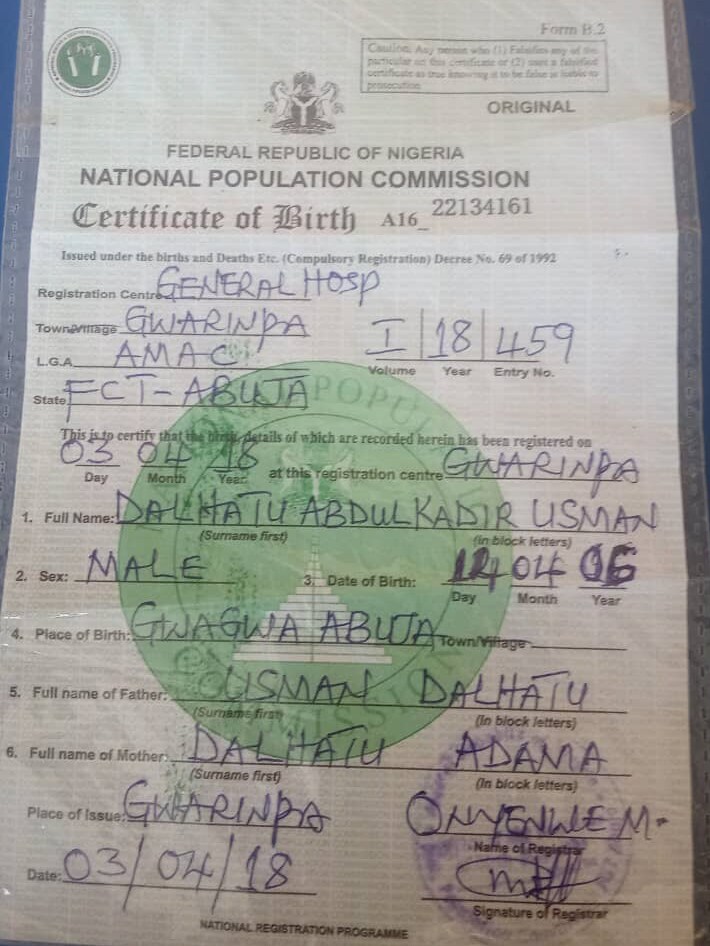 Form B.2
Caution: Any person who (1) Falsifies any of the
particular on this certificate or (2) uses a falsified
certificate as true knowing it to be false is liable to
prosecution
ORIGINAL
FEDERAL REPUBLIC OF NIGERIA
NATIONAL POPULATION COMMISSION
Certificate of Birth A16_ 22134161
Issued under the births and Deaths Etc. (Compulsory Registration) Decree No. 69 of 1992
Registration Centre GENERAL HOSP
Town/Village GWARINPA
I 18 459
Volume Year Entry No.
L.G.A. AMAC
State FCT-ABUJA
This is to certify that the birth, details of which are recorded herein has been registered on
03 04 18 at this registration centre GWARINPA
Day Month Year
1. Full Name: DALHATU ABDULKADIR USMAN
(Surname first) (in block letters)
2. Sex: MALE 3. Date of Birth: 04
Day Month Year
4. Place of Birth: GWAGWA ABUJA Town/Village
5. Full name of Father: USMAN DALHATU
(Surname first) (In block letters)
6. Full name of Mother: DALHATU ADAMA
(Surname first) (In block letters)
Place of Issue: GWARINPA ONYENWE M.
Name of Registrar
Date: 03/04/18
Signature of Registrar
NATIONAL REGISTRATION PROGRAMME